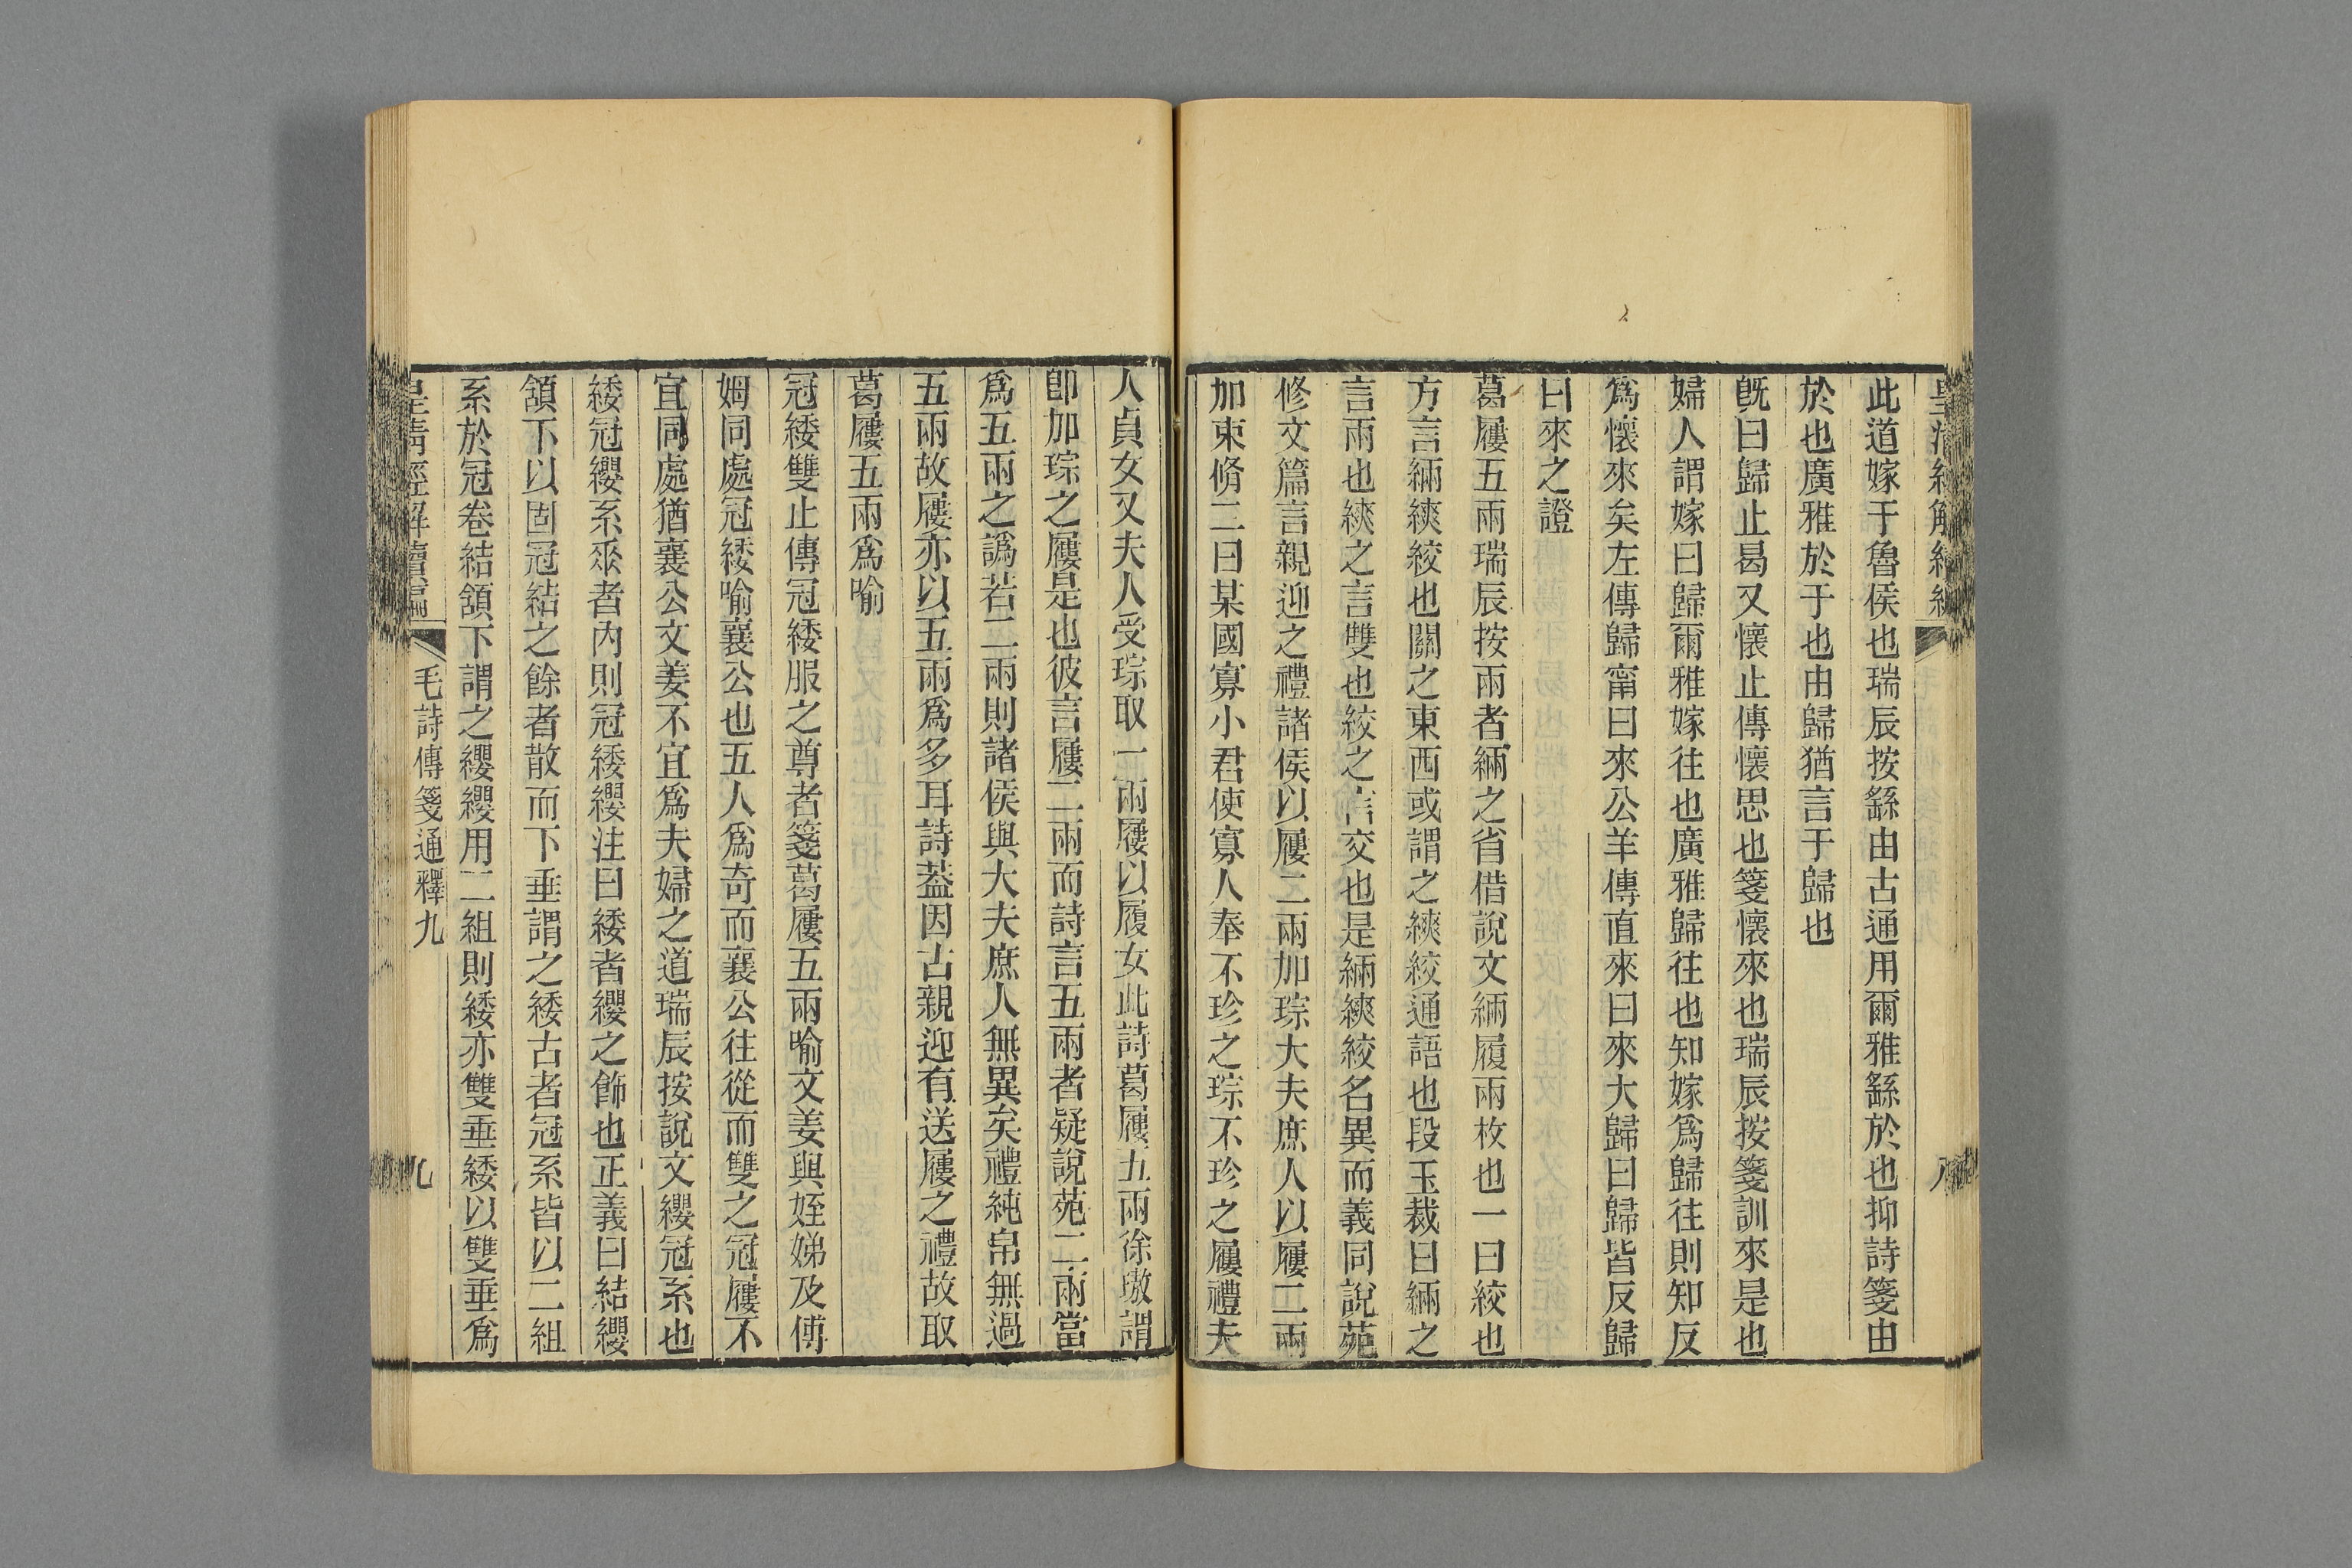 此道嫁于魯侯也瑞辰按繇由古通用爾雅繇於也抑詩箋由
於也廣雅於于也由歸猶言于歸也
旣曰歸止曷又懷止傳懷思也箋懷來也瑞辰按箋訓來是也
婦人謂嫁曰歸爾雅嫁往也廣雅歸往也知嫁爲歸往則知反
爲懷來矣左傳歸甯曰來公羊傳直來曰來大歸曰歸皆反歸
曰來之證
葛屨五兩瑞辰按兩者緉之省借說文緉履兩枚也一曰絞也
方言緉緛絞也關之東西或謂之緛絞通語也段玉裁曰緉之
言兩也緛之言雙也絞之言交也是緉緛絞名異而義同說苑
修文篇言親迎之禮諸侯以屨二兩加琮大夫庶人以屨二兩
加束脩二曰某國寡小君使寡人奉不珍之琮不珍之屨禮夫
人貞女又夫人受琮取一兩屨以履女此詩葛屨五兩徐璈謂
卽加琮之屨是也彼言屨二兩而詩言五兩者疑說苑二兩當
爲五兩之譌若二兩則諸侯與大夫庶人無異矣禮純帛無過
五兩故屨亦以五兩爲多耳詩葢因古親迎有送屨之禮故取
葛屨五兩爲喻
冠緌雙止傳冠緌服之尊者箋葛屨五兩喻文姜與姪娣及傅
姆同處冠緌喻襄公也五人爲奇而襄公往從而雙之冠屨不
宜同處猶襄公文姜不宜爲夫婦之道瑞辰按說文纓冠系也
緌冠纓系𠂹者內則冠緌纓注曰緌者纓之飾也正義曰結纓
頷下以固冠結之餘者散而下垂謂之緌古者冠系皆以二組
系於冠卷結頷下謂之纓纓用二組則緌亦雙垂緌以雙垂爲
毛詩傳箋通釋九
九